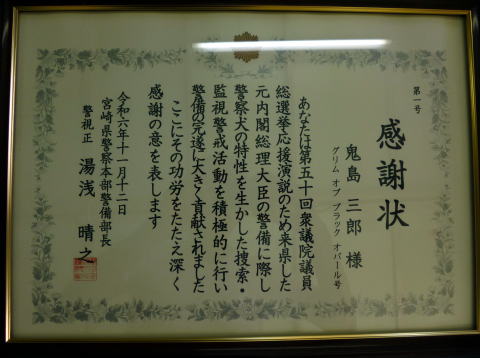 第一号
感謝状
鬼島 三郎 様
グリム オブ ブラック オパール号
あなたは第五十回衆議院議員
総選挙応援演説のため来県した
元内閣総理大臣の警備に際し
警察犬の特性を生かした捜索・
監視警戒活動を積極的に行い
警備の完遂に大きく貢献されました
ここにその功労をたたえ深く
感謝の意を表します
令和六年十一月十二日
宮崎県警察本部警備部長
警視正 湯浅 晴之